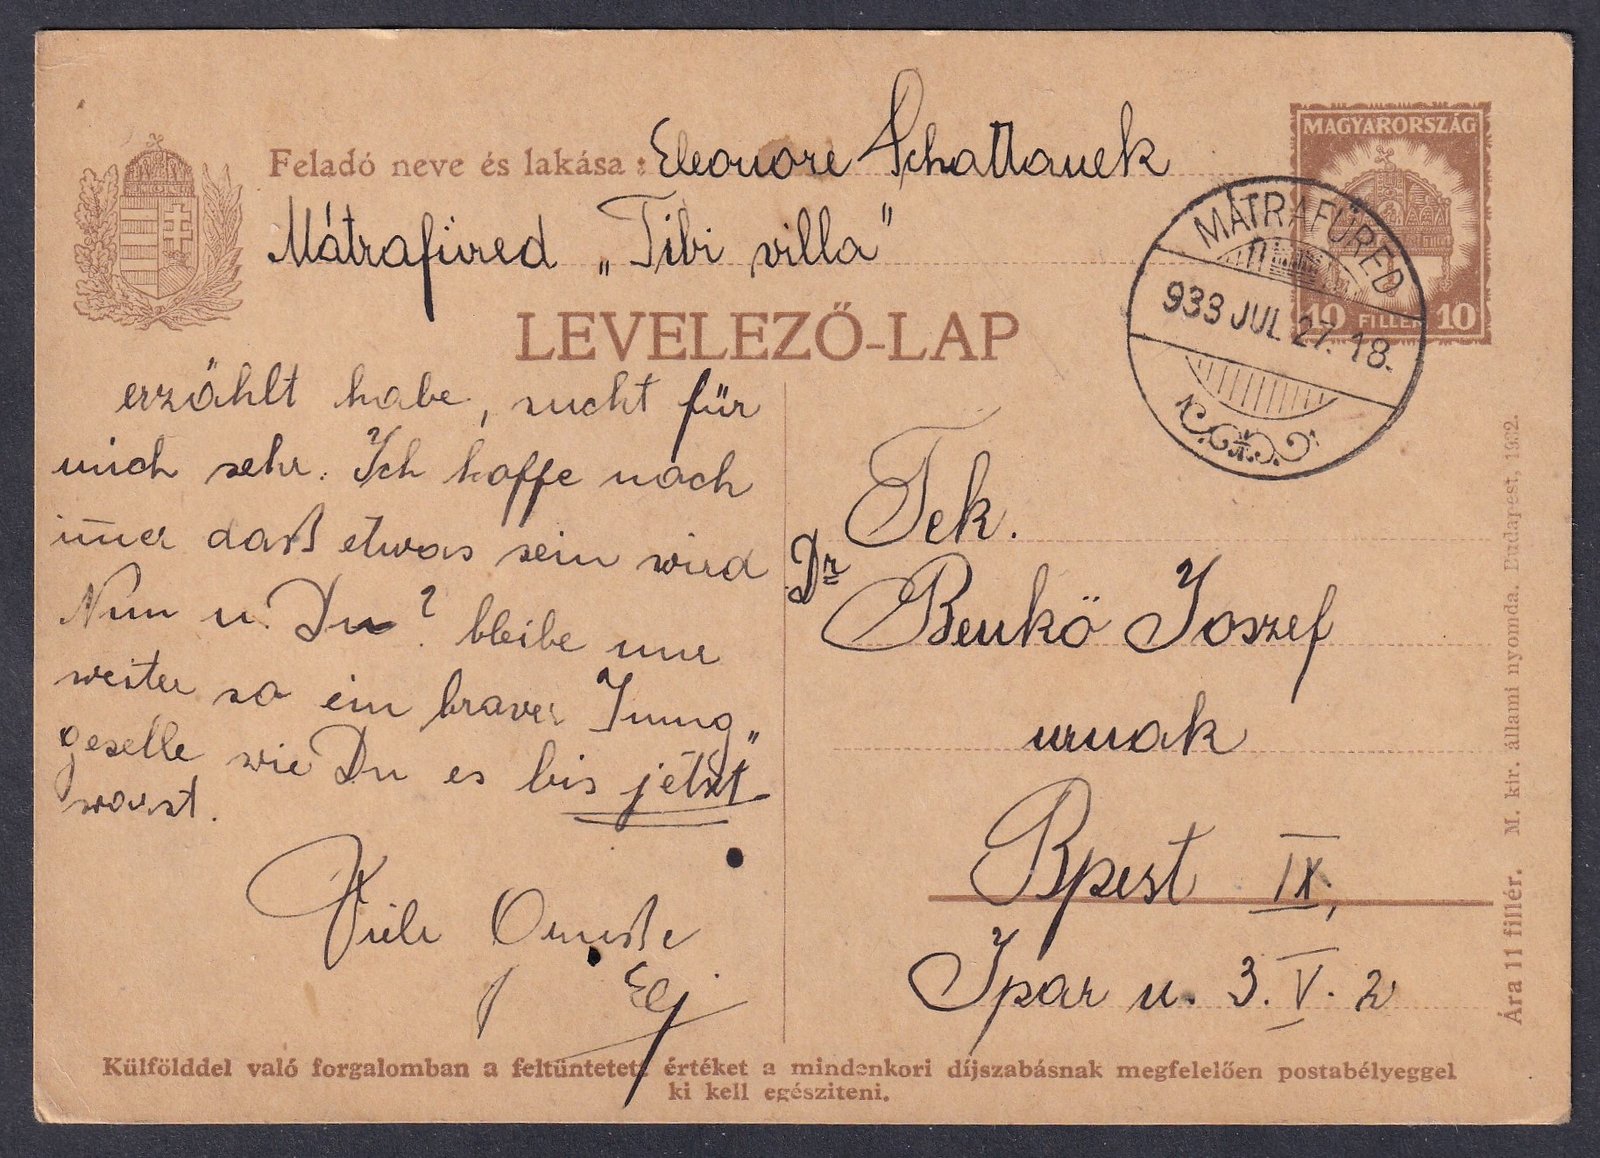 Feladó neve és lakása: Eleonore Schattanek
Mátrafüred „Tibi villa"
LEVELEZŐ-LAP
MAGYARORSZÁG
10 FILLÉR 10
MÁTRAFÜRED
933 JUL 27. 18.
erzählt habe, sucht für
mich sehr. Ich hoffe noch
im̄er daß etwas sein wird
Nun u. Du? bleibe nur
weiter so ein braver Jung„
geselle wie Du es bis jetzt
warst.
Viele
Elj
Tek.
Dr Benkö Joszef
urnak
Bpest IX,
Ipar u. 3. V. 2
Külfölddel való forgalomban a feltüntetett értéket a mindenkori díjszabásnak megfelelően postabélyeggel
ki kell egésziteni.
Ára 11 fillér. M. kir. állami nyomda. Budapest, 1932.